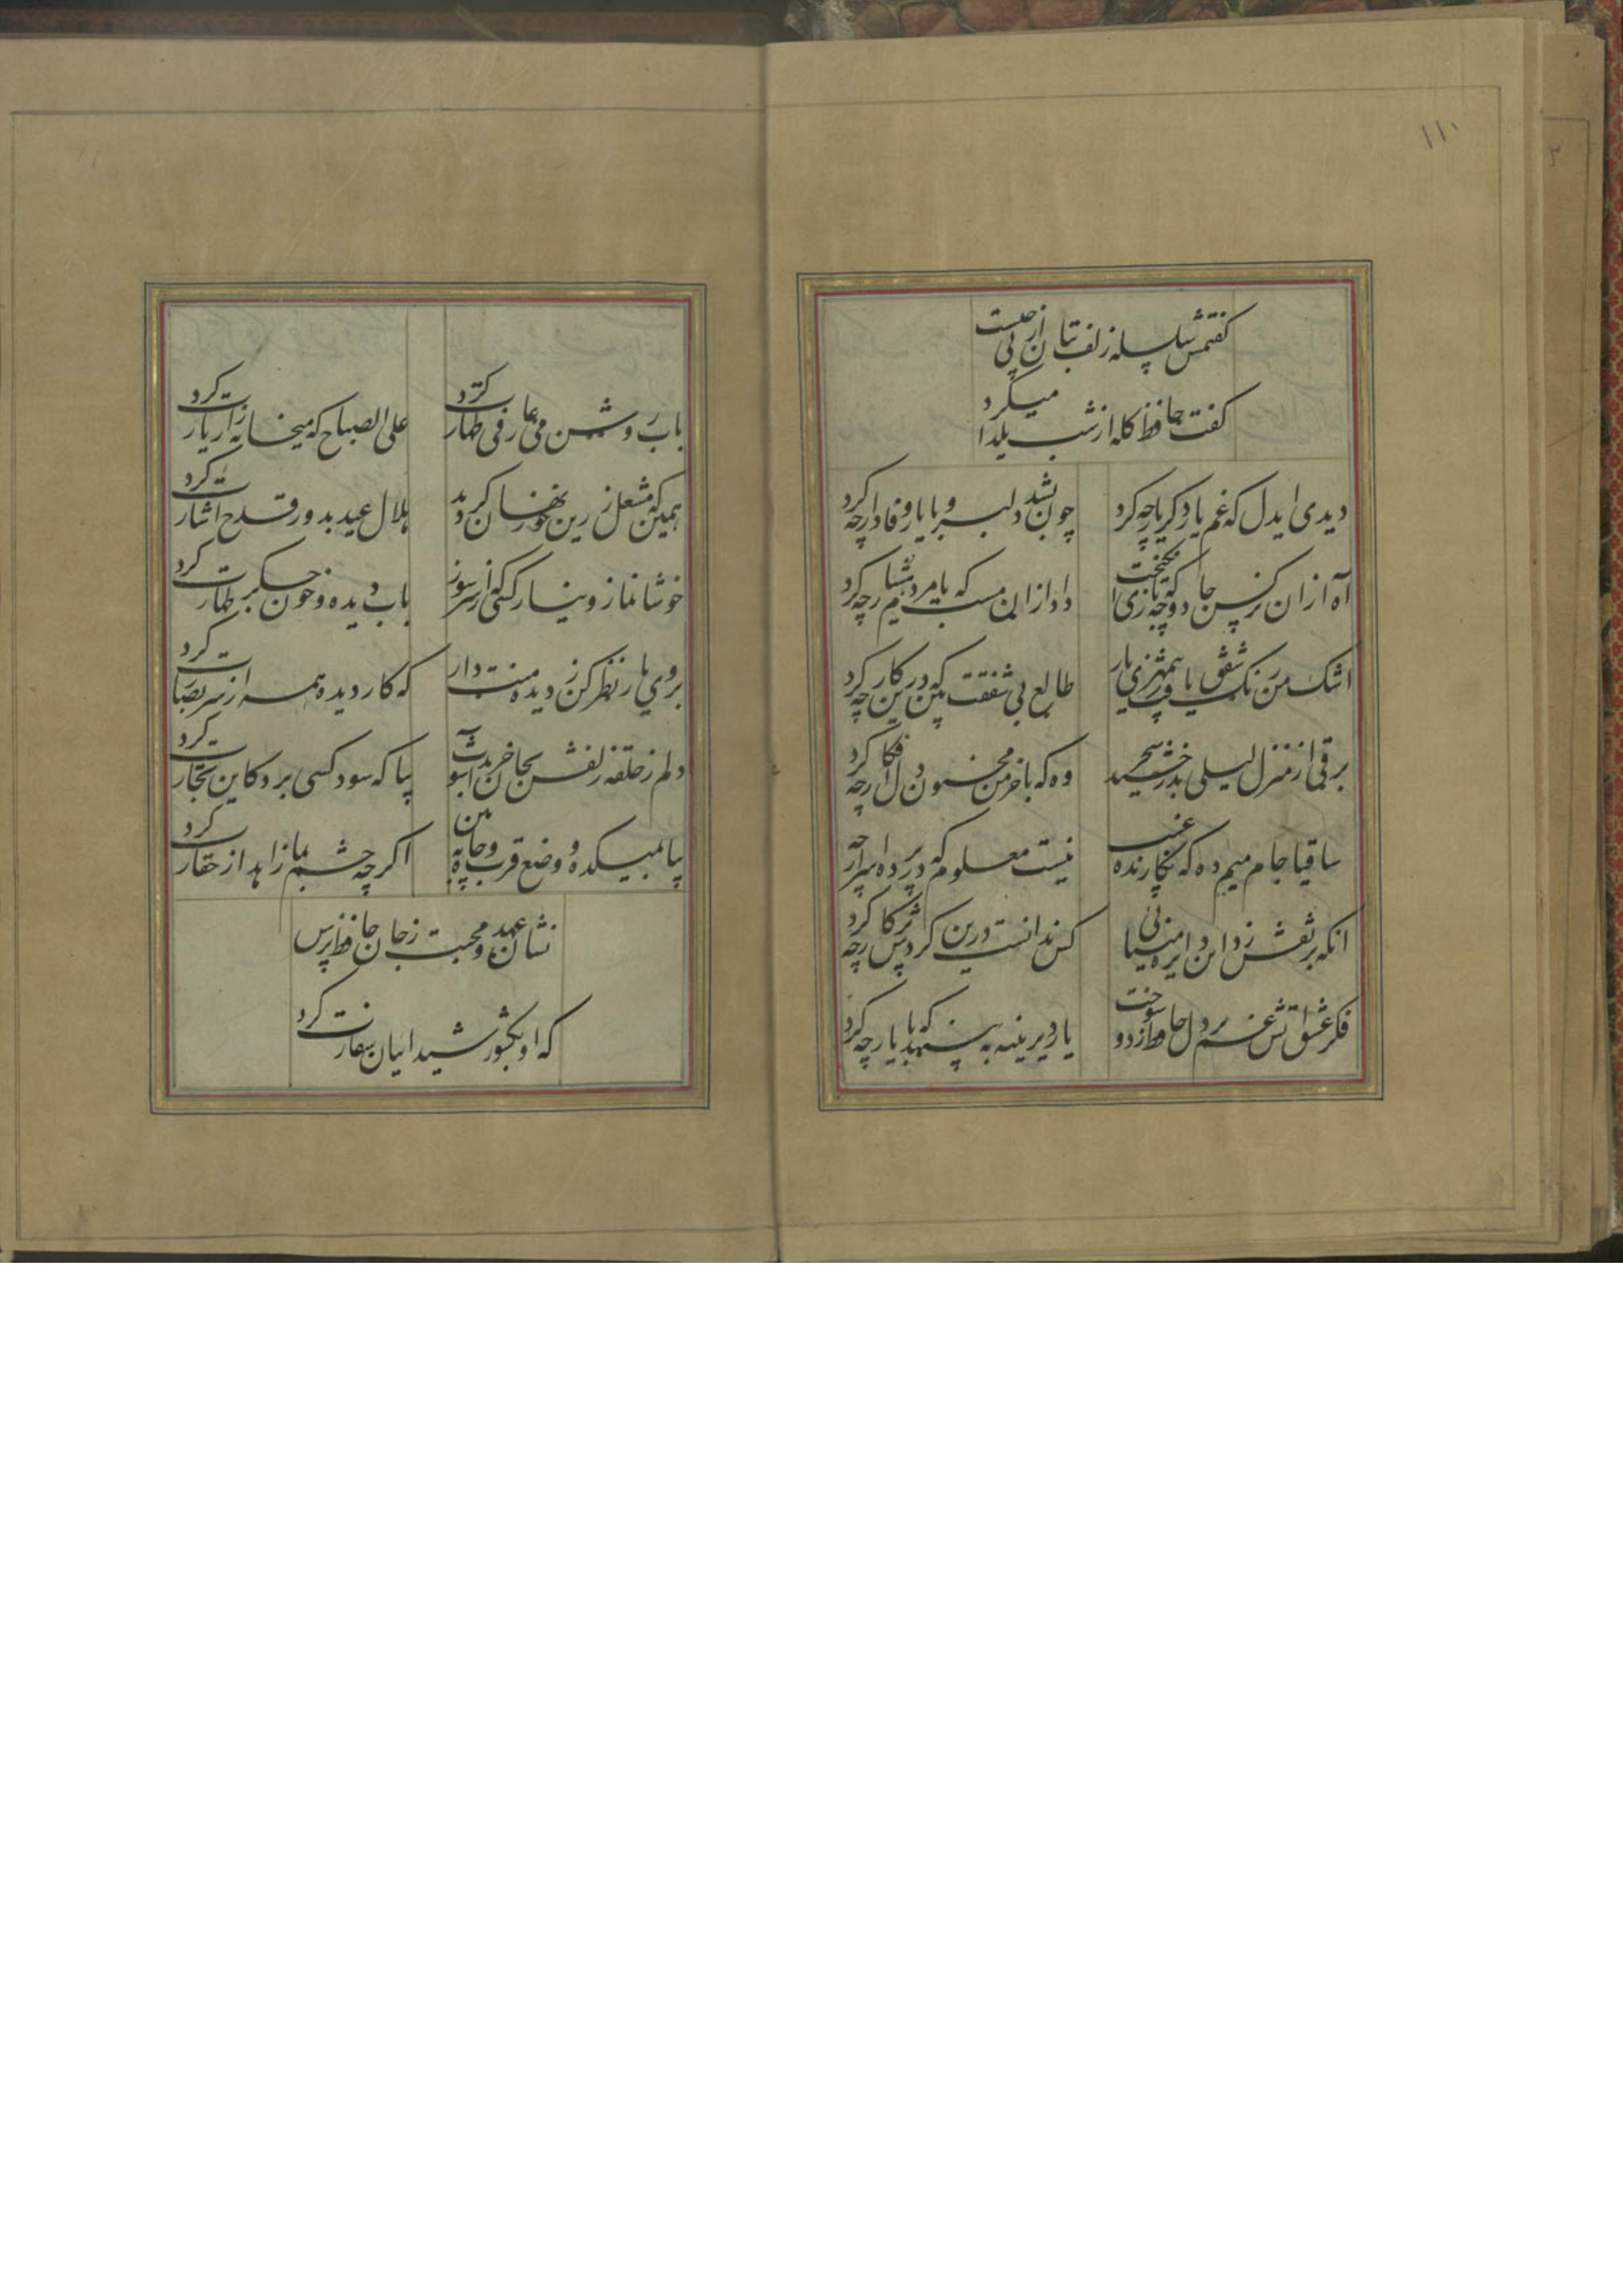 ۱۱۰
کفتمش سلسله زلف بتان از پی چیست
کفت حافظ کله از شب یلدا میکرد
دیدی ایدل که غم یار دکر باره چه کرد
چون بشد دلبر و با یار وفادار چه کرد
آه ازان نرکس جادو که چه بازی انکیخت
داد ازان مست که با مردم هشیار چه کرد
اشک من رنک شفق یافت ز بیمهری یار
طالع بی شفقت بین که درین کار چه کرد
برقی از منزل لیلی بدرخشید سحر
وه که با خرمن مجنون دل افکار چه کرد
ساقیا جام میم ده که نکارنده غیب
نیست معلوم که در پرده اسرار چه
انکه پر نقش زد این دایره مینائی
کس ندانست که در کردش پرکار چه کرد
فکر عشق اتش غم در دل حافظ زد و سوخت
یار دیرینه ببینید که با یار چه کرد
باب روشن می عارفی طهارت کرد
علی الصباح که میخانه را زیارت کرد
همین که مشعل زرین خور نهان کردید
هلال عید بدور قدح اشارت کرد
خوشا نماز و نیاز کسی که از سر سوز
باب دیده و خون جکر طهارت کرد
بروی یار نظر کن ز دیده منت دار
که کار دیده همه از سر بصارت کرد
دلم ز حلقه زلفش بجان خرید آشوب
بیا که سود کسی برد کاین تجارت کرد
بیا بمیکده و وضع قرب و جاهم بین
اکرچه چشم بما زاهد از حقارت کرد
نشان عهد و محبت ز جان حافظ پرس
که او بکشور شیدائیان سفارت کرد